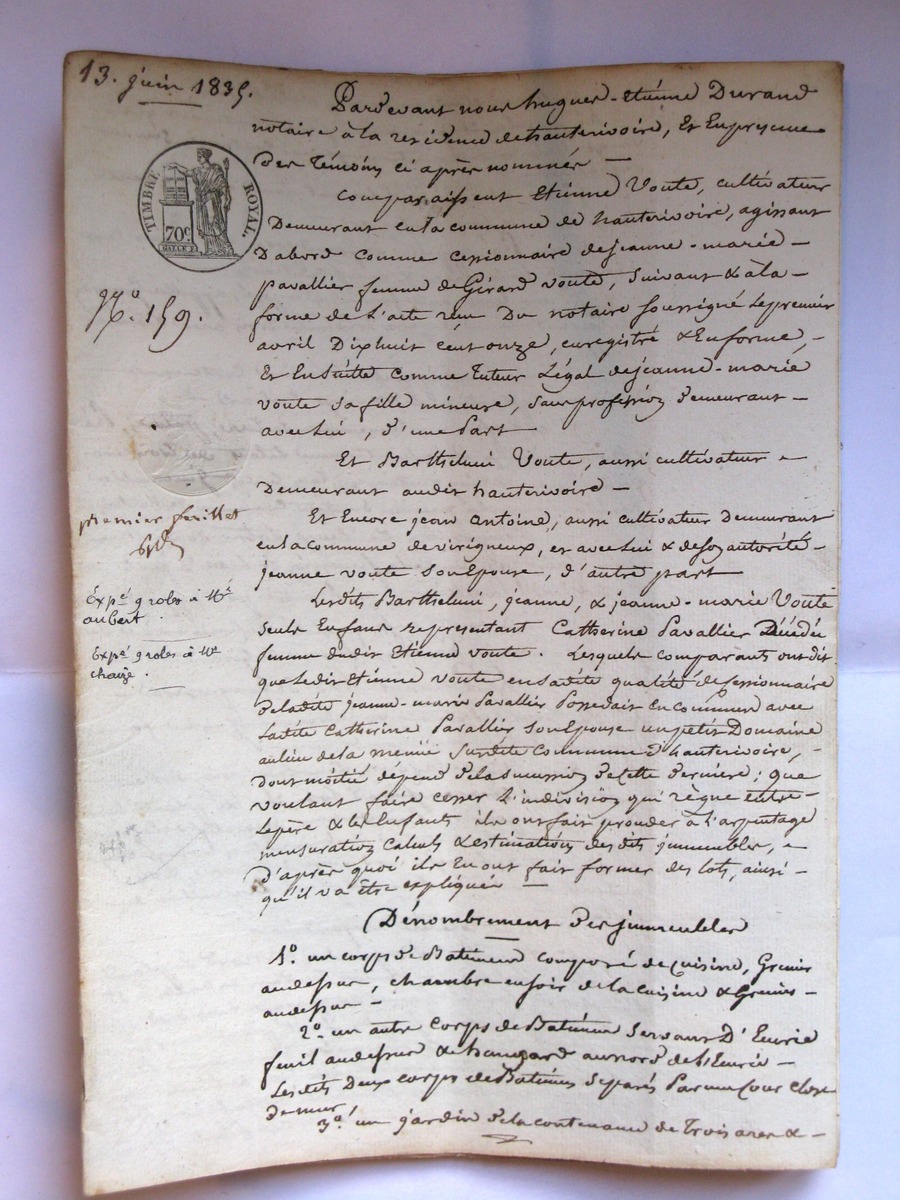 13. juin 1835.
Pardevant nous hugues-etienne Durand
notaire à la residence de hauterivoire, et En presence
des Témoins ci après nommés —
Comparaissent Etienne Voute, cultivateur
Demeurant en la commune de hauterivoire, agissant
D'abord comme cessionnaire de jeanne-marie-
pavallier femme de Girard voute, suivant & à la-
forme de L'acte reçu Du notaire soussigné Le premier
avril Dix huit cent onze, enregistré & En forme,-
Et En Suitte comme Tuteur Légal de jeanne-marie
voute sa fille mineure, sans profession demeurant-
avec Lui, d'une Part
Et Barthelmi Voute, aussi cultivateur
Demeurant audit hauterivoire —
Et Encore jean antoine, aussi cultivateur Demeurant
en la commune de virigneux, et avec Lui & de son autorité-
jeanne voute son Epouse, d'autre part
Lesdits Barthelmi, jeanne, & jeanne-marie Voute
seuls Enfans representant Catherine Pavallier Décédée
femme dudit Etienne voute. Lesquels comparants ont dit
que Ledit Etienne voute en sadite qualité de Cessionnaire
de ladite jeanne-marie Pavallier Possedait en Commun avec
Ladite Catherine Pavallier son Epouse un petit Domaine
au lieu de la susdite Commune d'hauterivoire,-
dont moitié dépend de la succession de Cette derniere; que
voulant faire cesser L'indivision qui règne entre-
Le père & les Enfants ils ont fait proceder à l'arpentage
mensuration calculs & estimation desdits jmmeubles,
d'après quoi ils En ont fait former des lots, ainsi-
qu'il va être expliqué —
Dénombrement des jmmeubles
1.° un corps de Batiment composé de cuisine, Grenier
au dessus, chambre en soir de la cuisine & Grenier-
au dessus —
2.° un autre Corps de Batiment servant D'Ecurie
fenil au dessus & hangard au nord de l'Ecurie —
Lesdits Deux corps de Batiment separés Par une Cour close
de murs
3.° un jardin de la contenance de Trois ares & -
TIMBRE ROYAL.
70c
N.° 159.
premier feuillet
Expé 9 roles à Me
aubert.
Expé 9 roles à Me
chaize.